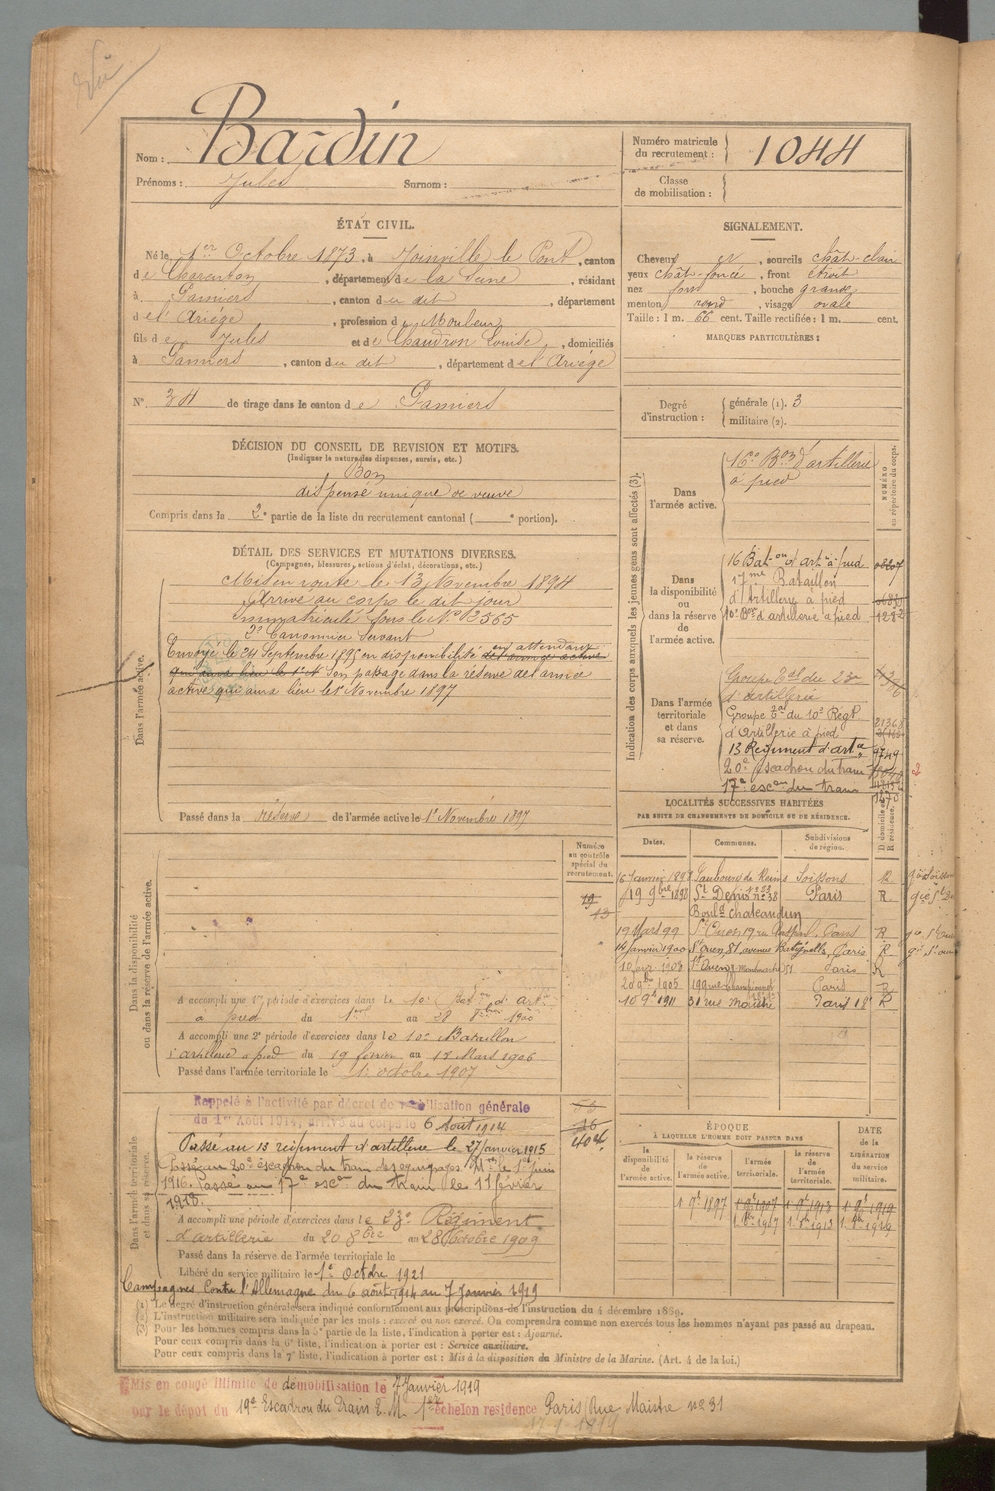 Vu
Nom : Bardin
Prénoms : Jules Surnom :
Numéro matricule du recrutement : 1044
Classe de mobilisation :
ÉTAT CIVIL.
Né le 1er Octobre 1873, à Joinville le Pont, canton
de Charenton, département de la Seine, résidant
à Pamiers, canton du dit, département
de l'Ariége, profession de Mouleur
fils de Jules et de Chaudron Louise, domiciliés
à Pamiers, canton du dit, département de l'Ariége
N° 34 de tirage dans le canton de Pamiers
SIGNALEMENT.
Cheveux et, sourcils chât-clair
yeux chât-foncé, front étroit
nez, bouche grande
menton rond, visage ovale
Taille : 1 m. 66 cent. Taille rectifiée : 1 m. cent.
MARQUES PARTICULIÈRES :
Degré d'instruction : générale (1). 3
militaire (2).
DÉCISION DU CONSEIL DE REVISION ET MOTIFS.
(Indiquer la nature des dispenses, sursis, etc.)
Bon
dispensé unique de veuve
Compris dans la 2e partie de la liste du recrutement cantonal ( e portion).
DÉTAIL DES SERVICES ET MUTATIONS DIVERSES.
(Campagnes, blessures, actions d'éclat, décorations, etc.)
Dans l'armée active.
Mis en route le 13 Novembre 1894
Arrivé au corps le dit jour
immatriculé sous le N° 3565
2e Canonnier Servant
Envoyé le 24 Septembre 1895 en disponibilité en attendant
son passage dans la réserve de l'armée
active qui aura lieu le 1er Novembre 1897
Passé dans la réserve de l'armée active le 1er Novembre 1897
Indication des corps auxquels les jeunes gens sont affectés (3).
NUMÉRO au répertoire du corps.
Dans l'armée active.
16e Bon d'artillerie
à pied
Dans la disponibilité ou dans la réserve de l'armée active.
16 Bat-on d'art-ie à pied
17me Bataillon
d'Artillerie à pied
10e Bon d'artillerie à pied 1282
Dans l'armée territoriale et dans sa réserve.
Groupe Tal du 23e
d'artillerie
Groupe Tal du 10e Régt
d'Artillerie à pied
13 Régiment d'artie 9749
20e escadron du train
17e escon du train
LOCALITÉS SUCCESSIVES HABITÉES
PAR SUITE DE CHANGEMENTS DE DOMICILE OU DE RÉSIDENCE.
Dates. Communes. Subdivisions de région. D domicile R résidence.
16 Janvier 1898 Faubourg de Reims Soissons R
19 9bre 1898 St Denis n° 38 Paris R
Boulevd chateaudun
19 Mars 99 St Ouen, 19 rue Paris R
14 janvier 1900 St Ouen, 81, avenue Batignolles Paris R
10 fevr 1903 St Ouen 51 Paris R
20 9bre 1905 199 rue Championnet Paris R
10 9bre 1911 31 rue Maistre Paris 18e R
Numéro au contrôle spécial du recrutement.
Dans la disponibilité ou dans la réserve de l'armée active.
A accompli une 1re période d'exercices dans le 10e Baton d'artie
à pied du 1er au 28 1900
A accompli une 2e période d'exercices dans le 10e Bataillon
d'artillerie à pied du 19 février au 17 Mars 1906
Passé dans l'armée territoriale le 1er octobre 1907
Dans l'armée territoriale et dans sa réserve.
Rappelé à l'activité par décret de mobilisation générale
du 1er Août 1914, arrivé au corps le 6 Août 1914
404
Passé au 13 régiment d'artillerie le 27 janvier 1915
Passé au 20e escadron du train des équipages Mres le 1er juin
1916. Passé au 17e escon du train le 11 février
1918.
A accompli une période d'exercices dans le 23e Régiment
d'artillerie du 20 8bre au 28 Octobre 1909
Passé dans la réserve de l'armée territoriale le
Libéré du service militaire le 1er Octbre 1921
Campagnes Contre l'Allemagne du 6 août 1914 au 7 Janvier 1919
ÉPOQUE
À LAQUELLE L'HOMME DOIT PASSER DANS
la disponibilité de l'armée active. la réserve de l'armée active. l'armée territoriale. la réserve de l'armée territoriale.
DATE de la LIBÉRATION du service militaire.
1 9b 1897 1 9b 1907 1 9b 1913 1 9b 1919
(1) Le degré d'instruction générale sera indiqué conformément aux prescriptions de l'instruction du 4 décembre 1889.
(2) L'instruction militaire sera indiquée par les mots : exercé ou non exercé. On comprendra comme non exercés tous les hommes n'ayant pas passé au drapeau.
(3) Pour les hommes compris dans la 5e partie de la liste, l'indication à porter est : Ajourné.
Pour ceux compris dans la 6e liste, l'indication à porter est : Service auxiliaire.
Pour ceux compris dans la 7e liste, l'indication à porter est : Mis à la disposition du Ministre de la Marine. (Art. 4 de la loi.)
Mis en congé illimité de démobilisation le 7 Janvier 1919
par le dépôt du 19e Escadron du Train E. M. 1er échelon residence Paris, Rue Maistre n° 31
17-1-1919